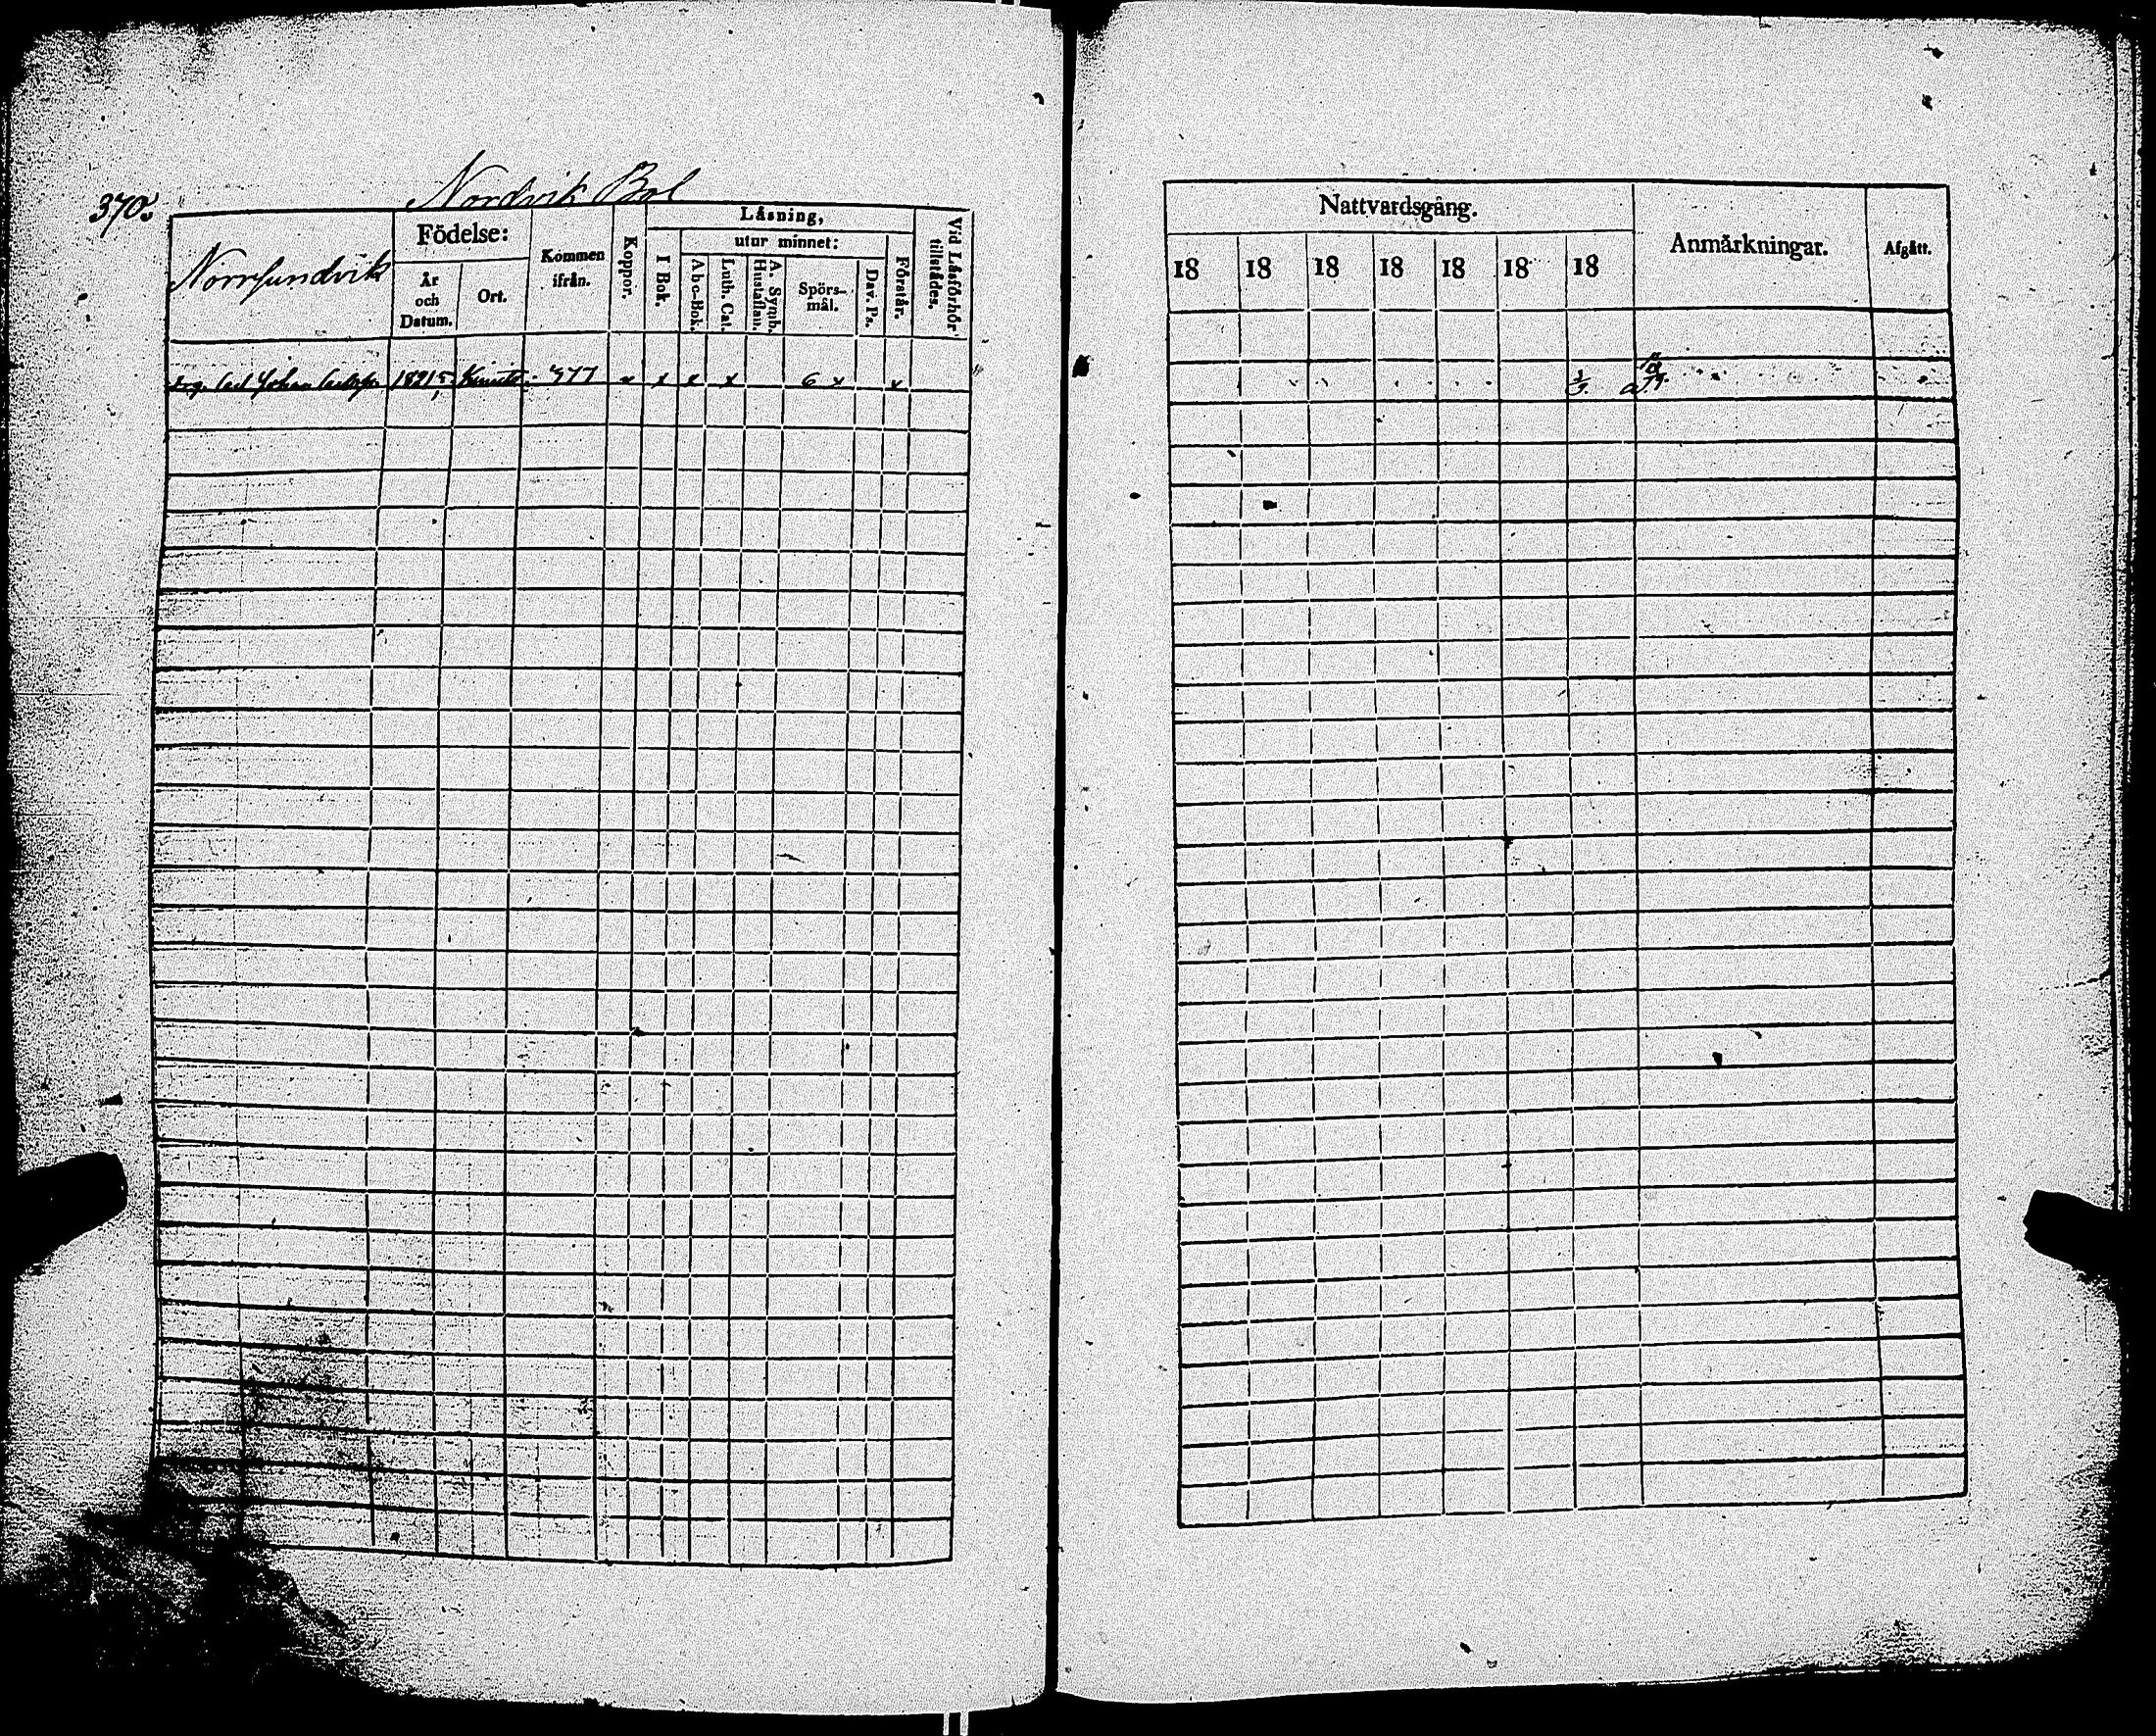 370.
Nordvik Bol
Norrsundvik
Födelse:
År och Datum.
Ort.
Kommen ifrån.
Koppor.
Läsning,
I Bok.
utur minnet:
Abc-Bok.
Luth. Cat.
A. Symb. Hustaflan.
Spörs-mål.
Dav. Ps.
Förstår.
Vid Läsförhör tillstädes.
Johan 1821 377 x x x x 6 x x
Nattvardsgång.
18 18 18 18 18 18 18
Anmärkningar.
Afgått.